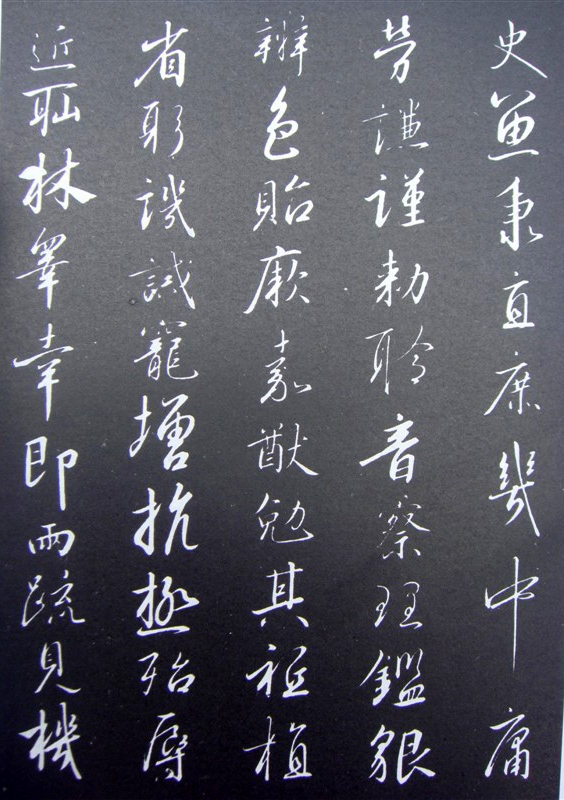 史魚秉直庶幾中庸
勞謙謹勅聆音察理鑑貌
辨色貽厥嘉猷勉其祗植
省躬譏誡寵增抗極殆辱
近耻林皋幸即兩疏見機